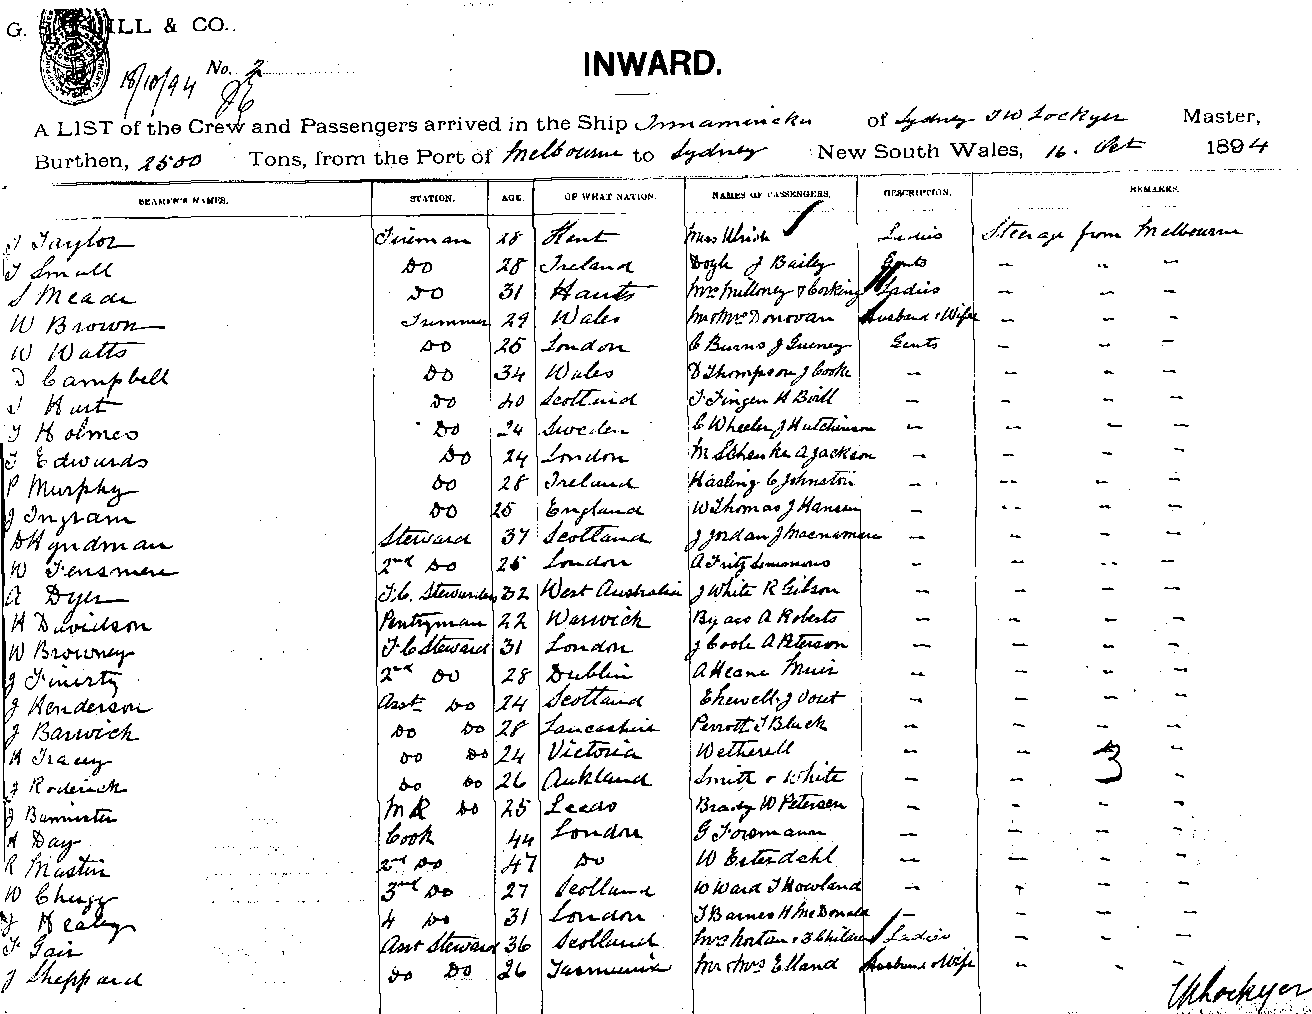 G. ILL & CO.
18/10/94 No. 2
INWARD.
A LIST of the Crew and Passengers arrived in the Ship Innamincka of Sydney T W Lockyer Master,
Burthen, 2500 Tons, from the Port of Melbourne to Sydney New South Wales, 16. Oct 1894
SEAMEN'S NAMES. STATION. AGE. OF WHAT NATION. NAMES OF PASSENGERS. DESCRIPTION. REMARKS.
J Taylor Fireman 28 Kent Mrs Ulrich Ladies Steerage from Melbourne
T Small Do 28 Ireland Doyle J Bailey Gents " " "
S Meade Do 31 Hants Mrs Milloney & Corking Ladies " " "
W Brown Trimmer 29 Wales Mr & Mrs Donovan Husband & Wife " " "
W Watts Do 25 London C Burns J Gurney Gents " " "
D Campbell Do 34 Wales D Thompson J Cooke " " " "
J Hurt Do 40 Scotland T Finger H Boill " " " "
T Holmes Do 24 Sweden C Wheeler J Hutchinson " " " "
T Edwards Do 24 London M Schenke A Jackson " " " "
P Murphy Do 28 Ireland Hasling C Johnston " " " "
J Ingram Do 25 England W Thomas J Hansen " " " "
D Hyndman Steward 37 Scotland J Jordan J Macnamara " " " "
W Fensmere 2nd Do 25 London A Fritz Simmons " " " "
A Dyer F.C. Stewardess 32 West Australia J White R Gibson " " " "
H Davidson Pantryman 22 Warwick Byass A Roberts " " " "
W Browney F.C Steward 31 London J Coole A Peterson " " " "
J Finerty 2nd Do 28 Dublin A Keane Muir " " " "
J Henderson Asst Do 24 Scotland E Hewell J Voist " " " "
J Barwick Do Do 28 Lancashire Perrott T Bluck " " " "
H Tracey Do Do 24 Victoria Wetherell " 3 "
J Roderick Do Do 26 Aukland Smith & White " " "
J Bannister M R Do 25 Leeds Brady W Petersen " " " "
H Day Cook 44 London G Foremann " " " "
R Mastin 2nd Do 47 Do W Esterdahl " " " "
W Chugg 3rd Do 27 Scotland W Ward T Howland " " " "
J Healey 4 Do 31 London T Barnes H McDonald " " " "
F Fair Asst Steward 36 Scotland Mrs Norton & 3 Children Ladies " " "
J Sheppard Do Do 26 Tasmania Mr & Mrs Elland Husband & Wife " " "
Lockyer